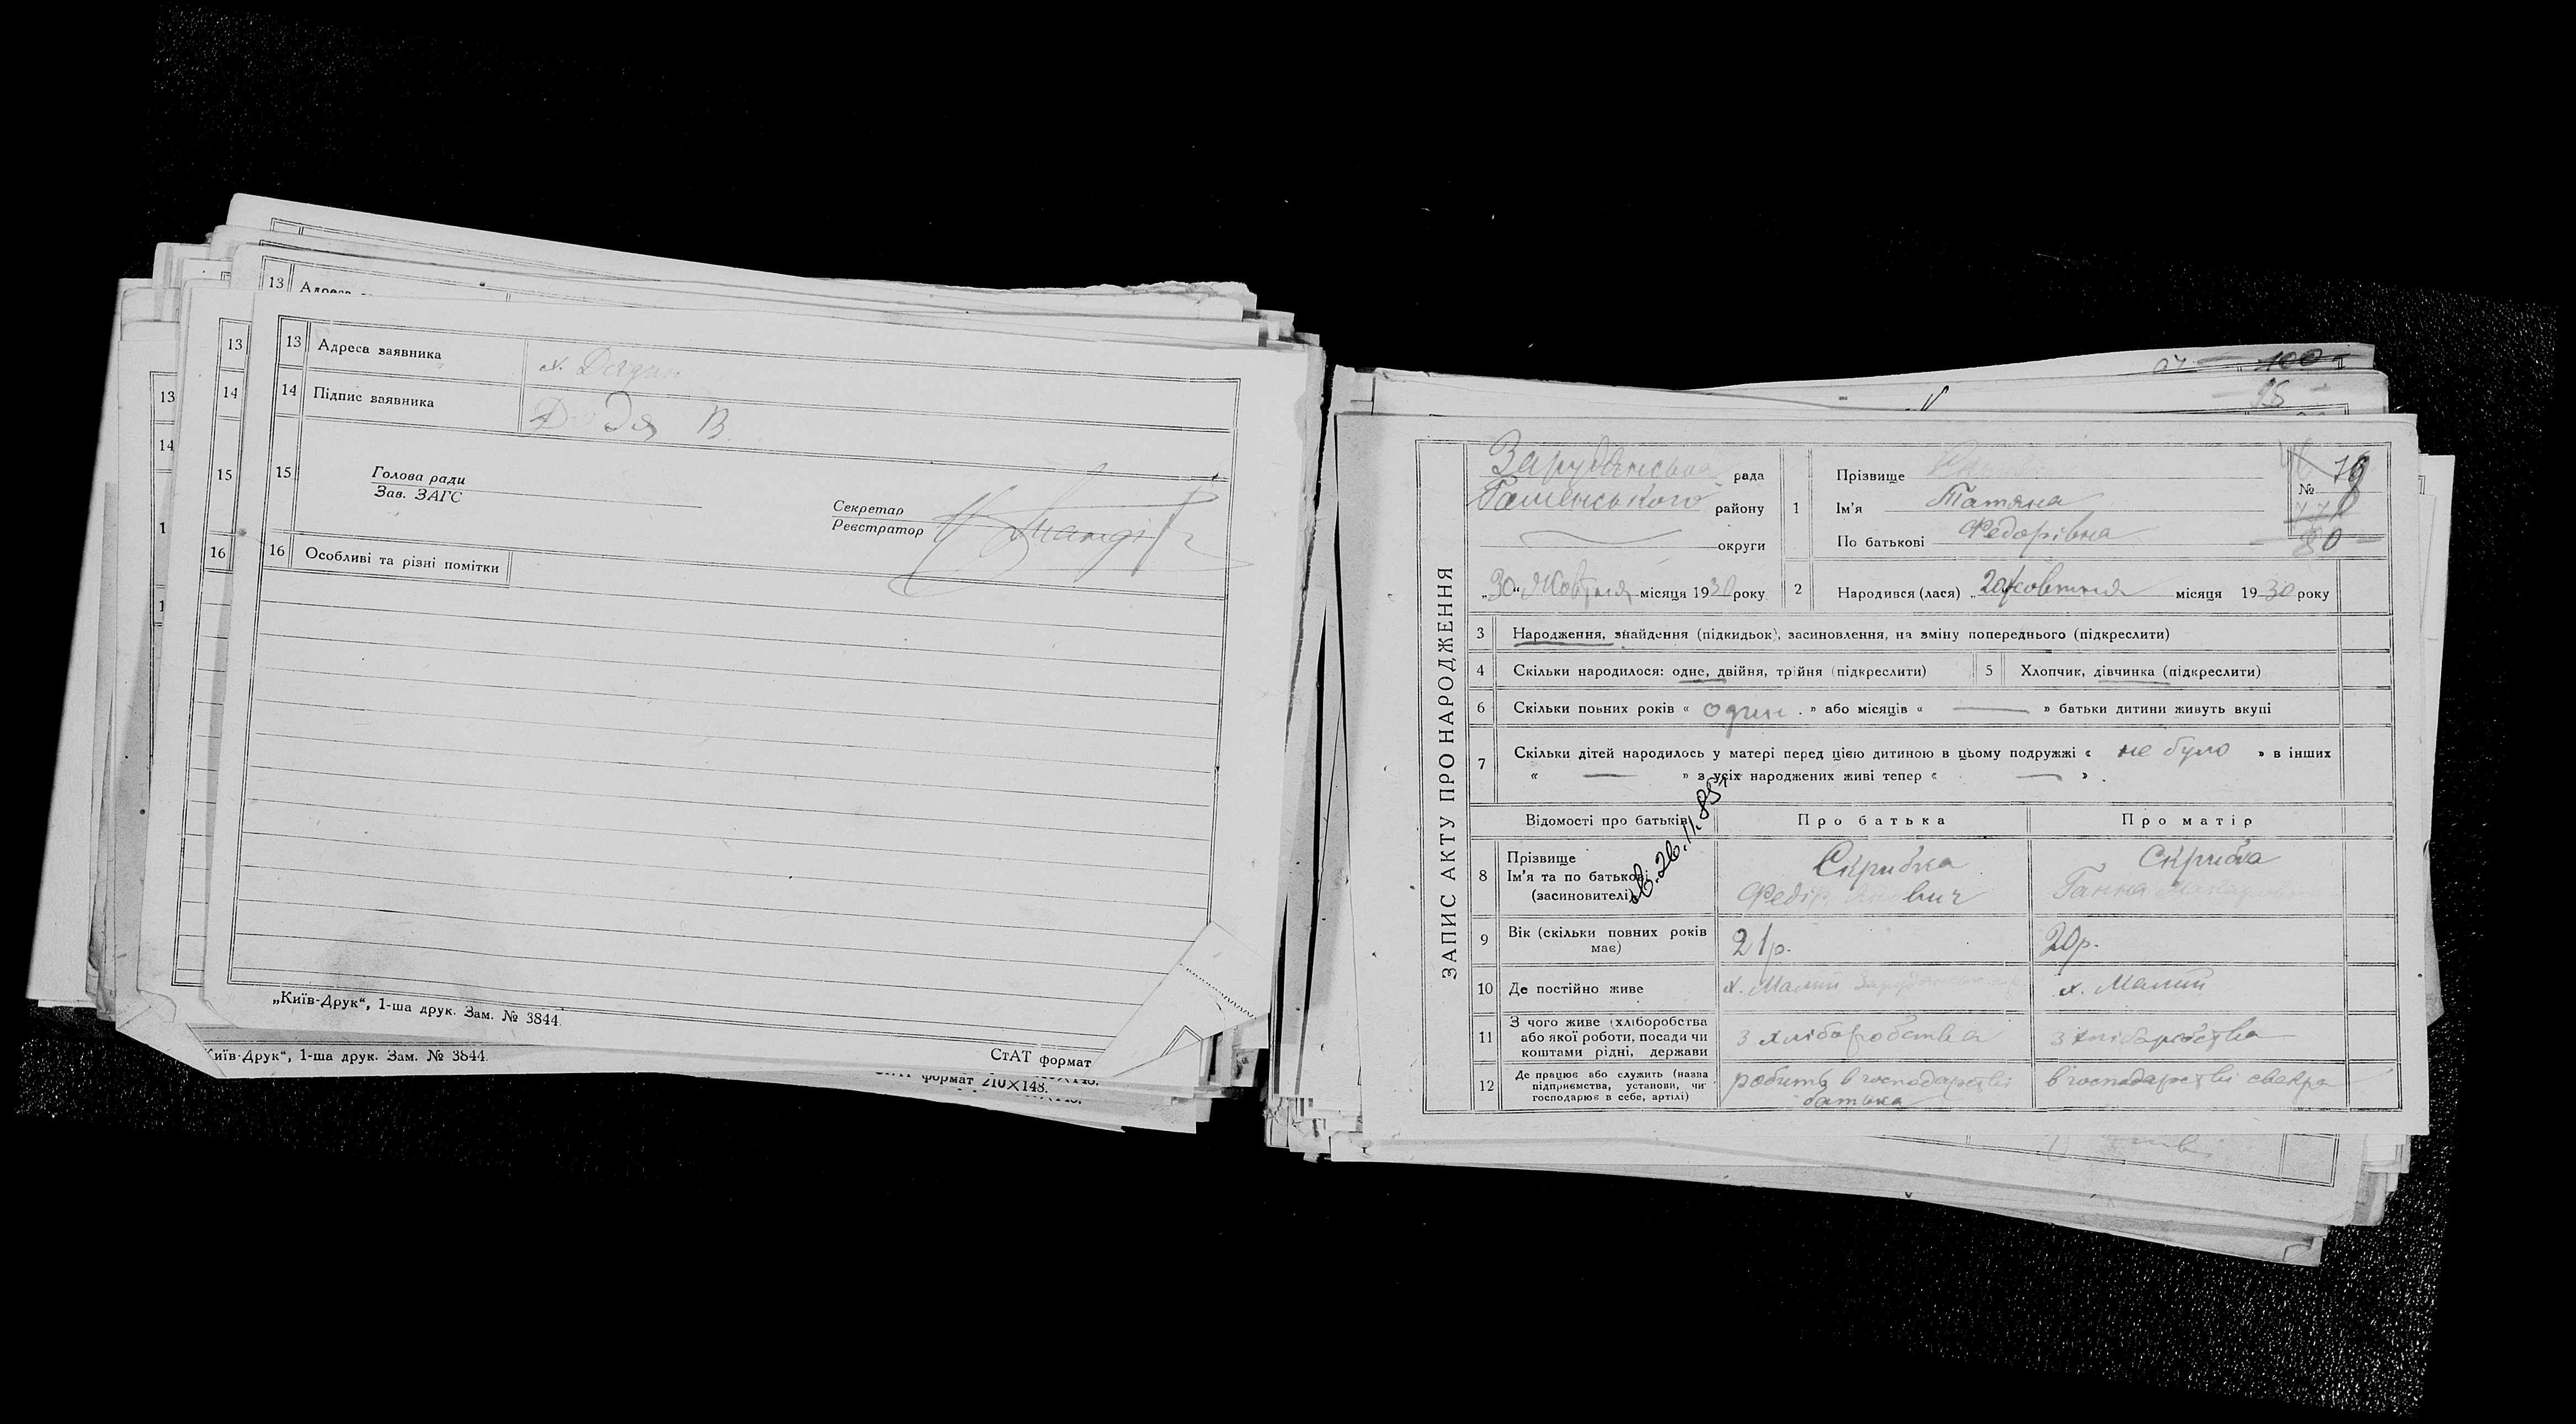 13 Адреса заявника х. Дядин
14 Підпис заявника Дядя В.
15 Голова ради
Зав. ЗАГС
Секретар
Реєстратор
16 Особливі та різні помітки
„Київ-Друк“, 1-ша друк. Зам. № 3844.
Київ-Друк“, 1-ша друк. Зам. № 3844.
СтАТ формат
формат 210×148.
13 Адреса
13
14
15
16
13
14
100
95
ЗАПИС АКТУ ПРО НАРОДЖЕННЯ
Зарудянська рада
Роменського району
округи
„30“ Жовтня місяця 1930 року
1 Прізвище
Ім'я Татяна
По батькові Федорівна
№ 79
80
2 Народився (лася) „ жовтня місяця 1930 року
3 Народження, знайдення (підкидьок), засиновлення, на зміну попереднього (підкреслити)
4 Скільки народилося: одне, двійня, трійня (підкреслити) 5 Хлопчик, дівчинка (підкреслити)
6 Скільки повних років « один » або місяців « — » батьки дитини живуть вкупі
7 Скільки дітей народилось у матері перед цією дитиною в цьому подружжі « не було » в інших
« — » з усіх народжених живі тепер « — ».
Відомості про батьків Про батька Про матір
8 Прізвище
Ім'я та по батькові
(засиновителі)
26.11.85
Скрибка
Федір
Скрибка
Ганна
9 Вік (скільки повних років має) 21р. 20р.
10 Де постійно живе х. Малий х. Малий
11 З чого живе (хліборобства
або якої роботи, посади чи
коштами рідні, держави
з хліборобства з хліборобства
12 Де працює або служить (назва
підприємства, установи, чи
господарює в себе, артілі)
робить в господарстві
батька
в господарстві свекра